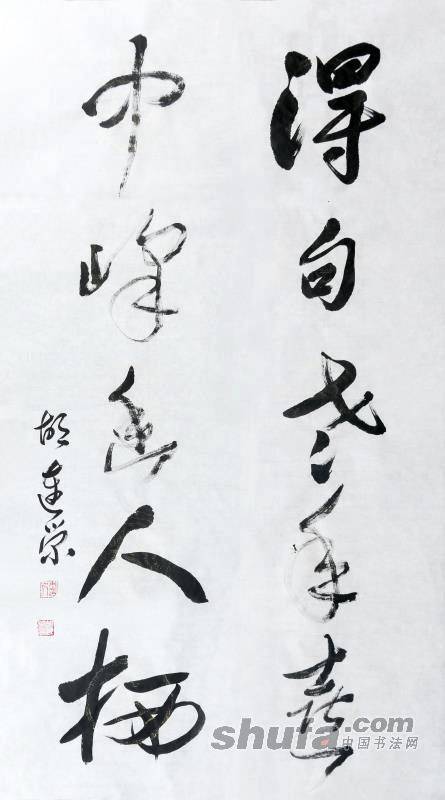 得句老年喜
中峰幽人栖
胡連荣
shufa.com 中国书法网